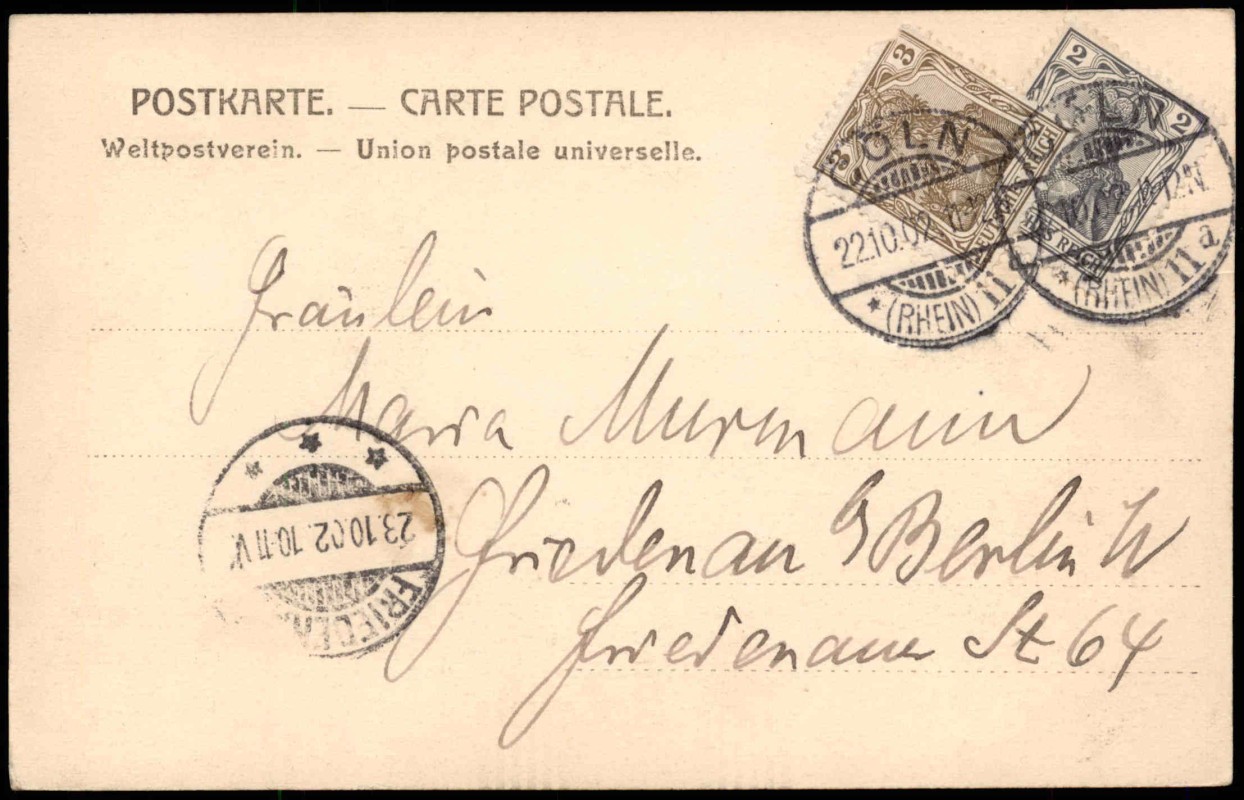 POSTKARTE. — CARTE POSTALE.
Weltpostverein. — Union postale universelle.
3
3
REICH
2
2
REICH
CÖLN
22.10.02
* (RHEIN) 11 a
LN
11-12N.
* (RHEIN) 11 a
Fräulein
Maria Murmann
Friedenau b/ Berlin W
Friedenauer St 64
23.10.02. 10-11 V.
FRIEDEN